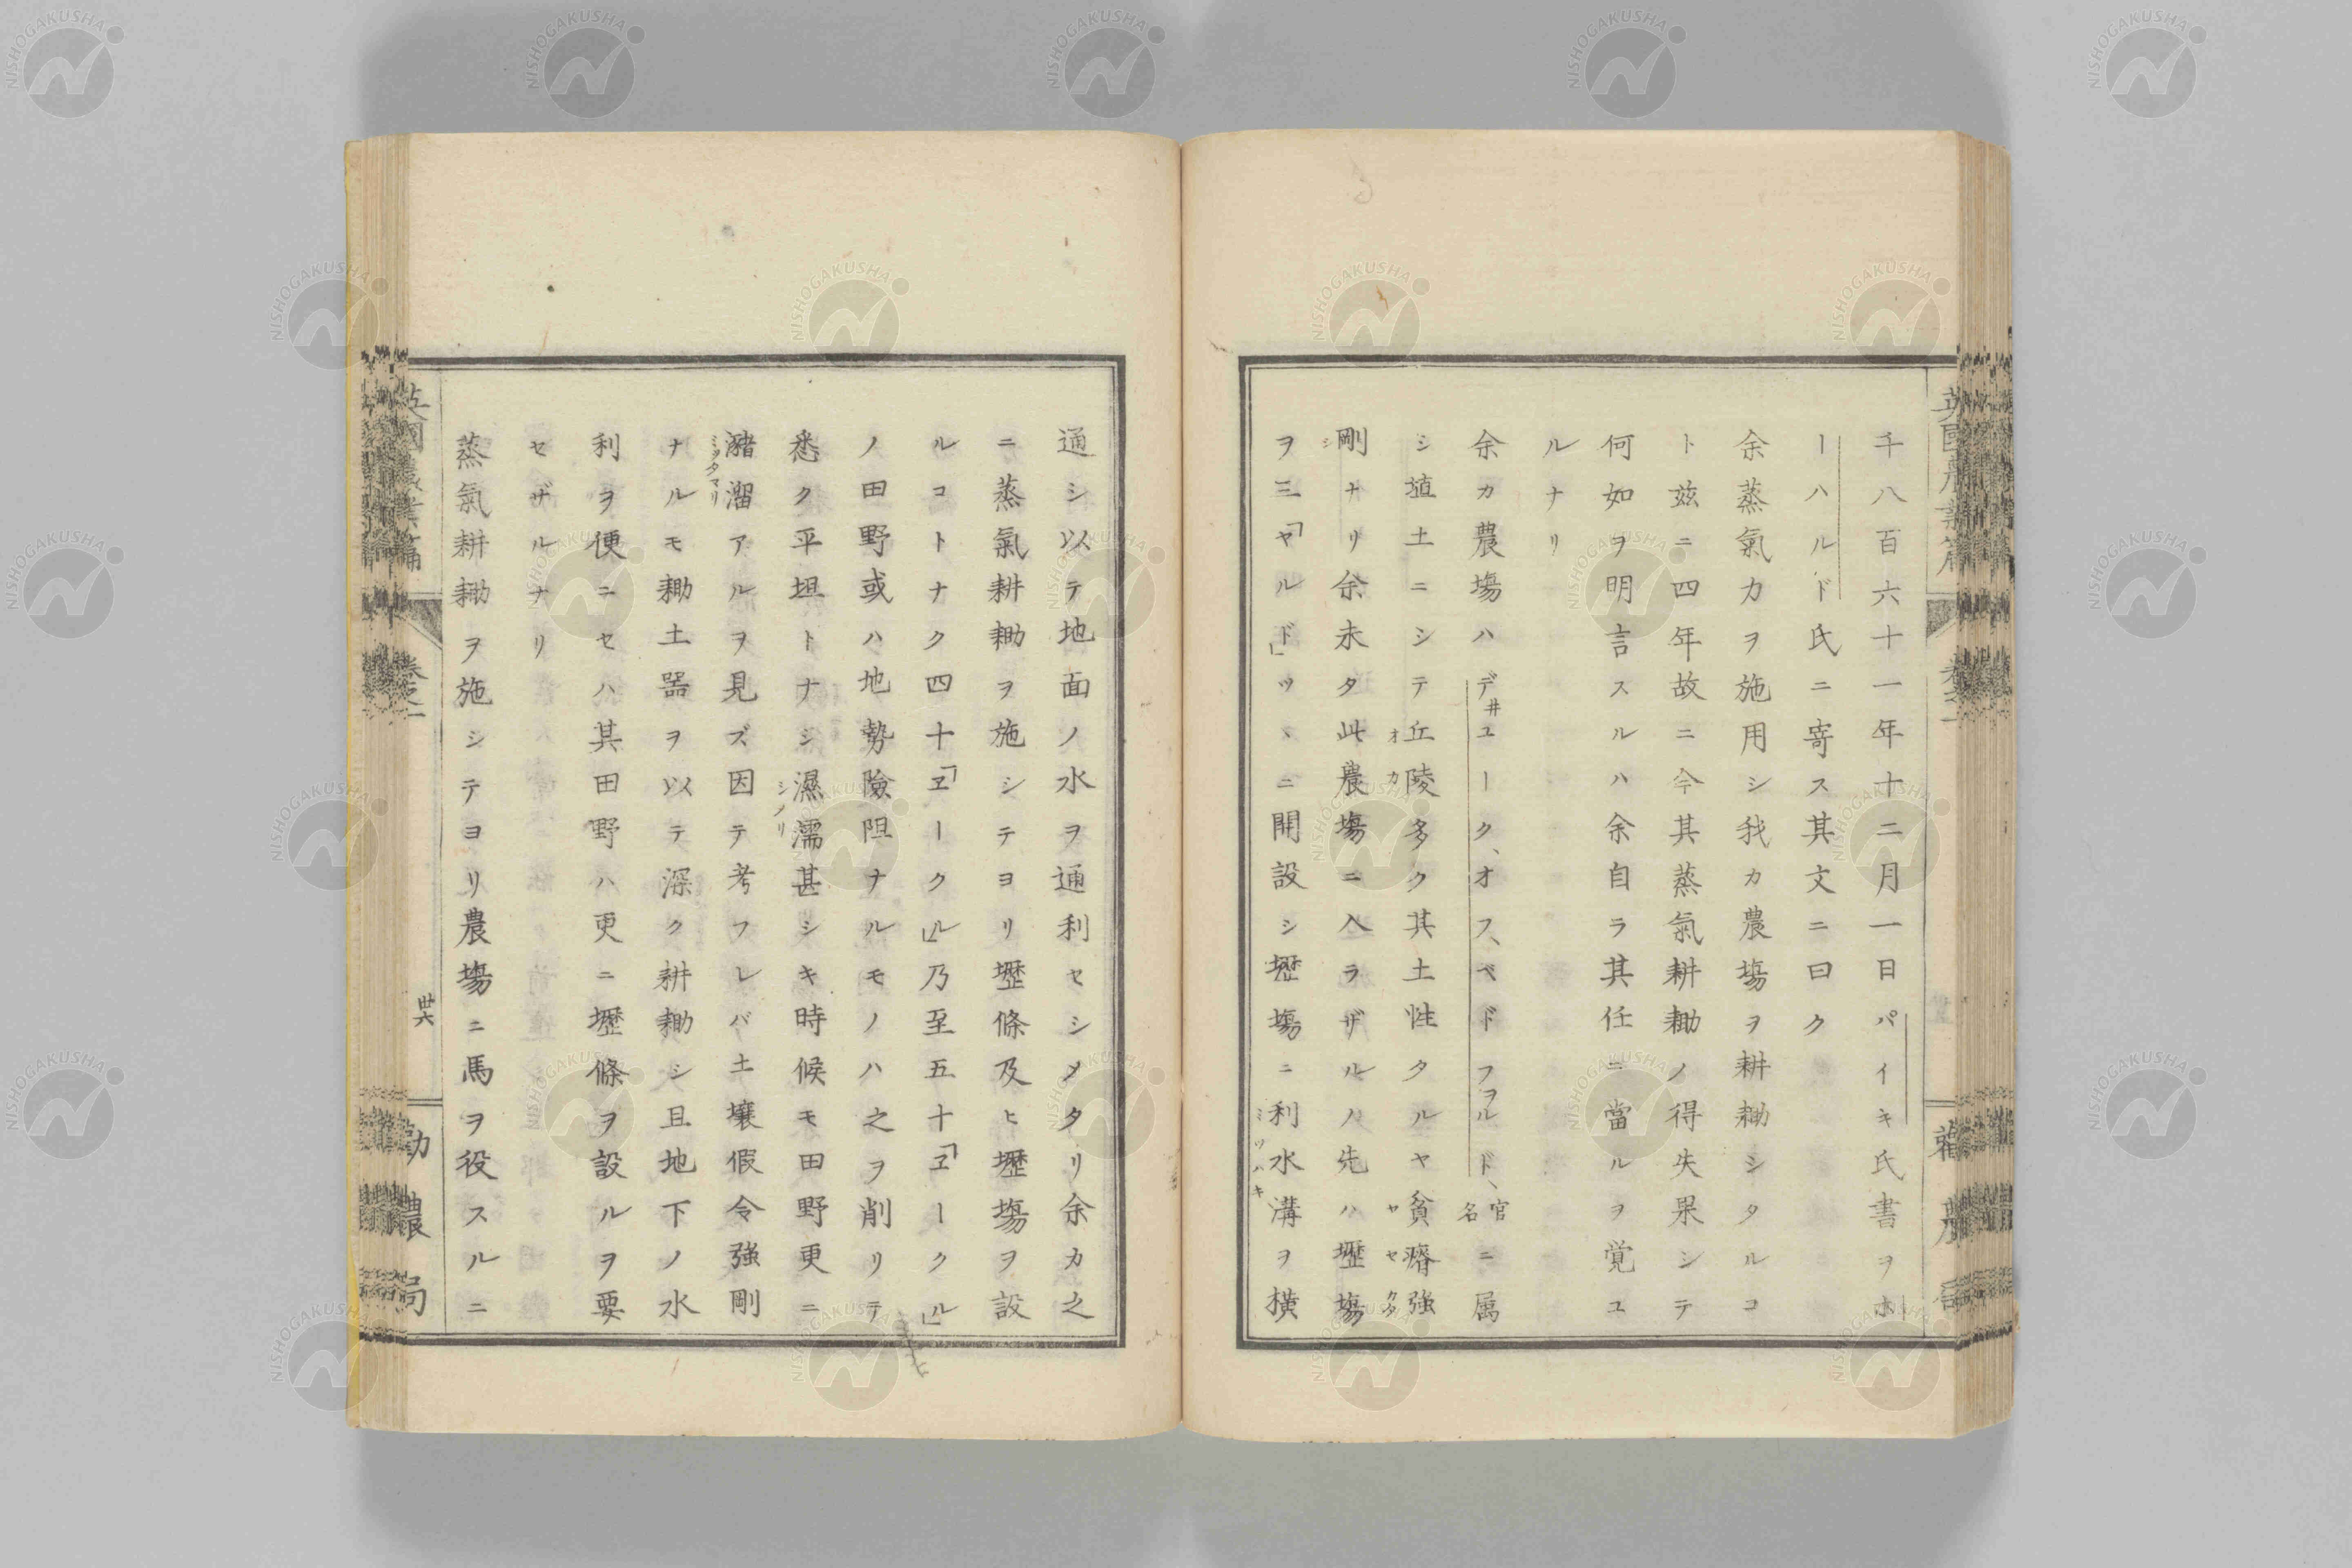 千八百六十一年十二月一日パイキ氏書ヲホ
ーハルド氏ニ寄ス其文ニ曰ク
余蒸氣カヲ施用シ我カ農塲ヲ耕耡シタルコ
ト茲ニ四年故ニ今其蒸氣耕耡ノ得失果シテ
何如ヲ明言スルハ余自ラ其任ニ當ルヲ覚ユ
ルナリ
余カ農塲ハデ井ユーク、オフ、ベドフヲルド、官名ニ属
シ埴土ニシテ丘陵多ク其土性タルヤ貧瘠強
オカ
ヤヤカタ
剛ナリ余未タ此農塲ニ入ラザルノ先ハ壢塲
シ
ヲ三「ヤルド」ツヽニ開設シ壢塲ニ利水溝ヲ横
ミツハキ
通シ以テ地面ノ水ヲ通利セシメタリ余カ之
ニ蒸氣耕耡ヲ施シテヨリ壢條及ヒ壢塲ヲ設
ルコトナク四十「ヱークル」乃至五十「ヱークル」
ノ田野或ハ地勢險阻ナルモノハ之ヲ削リテ
悉ク平坦トナシ濕濡甚シキ時候モ田野更ニ
シメリ
瀦溜アルヲ見ズ因テ考フレバ土壤假令強剛
ミヅタマリ
ナルモ耡土器ヲ以テ深ク耕耡シ且地下ノ水
利ヲ便ニセハ其田野ハ更ニ壢條ヲ設ルヲ要
セザルナリ
蒸氣耕耡ヲ施シテヨリ農塲ニ馬ヲ役スルニ
卷之一
卅六
勸農局
NISHOGAKUSHA